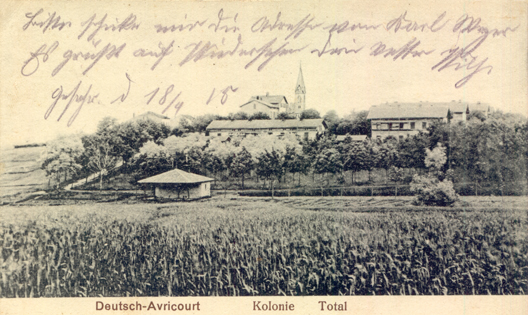 schicke mir die Adresse vom Karl Meyer
Es grüßt auf Wiedersehen dein Vetter
d 18/9 15
Deutsch-Avricourt Kolonie Total